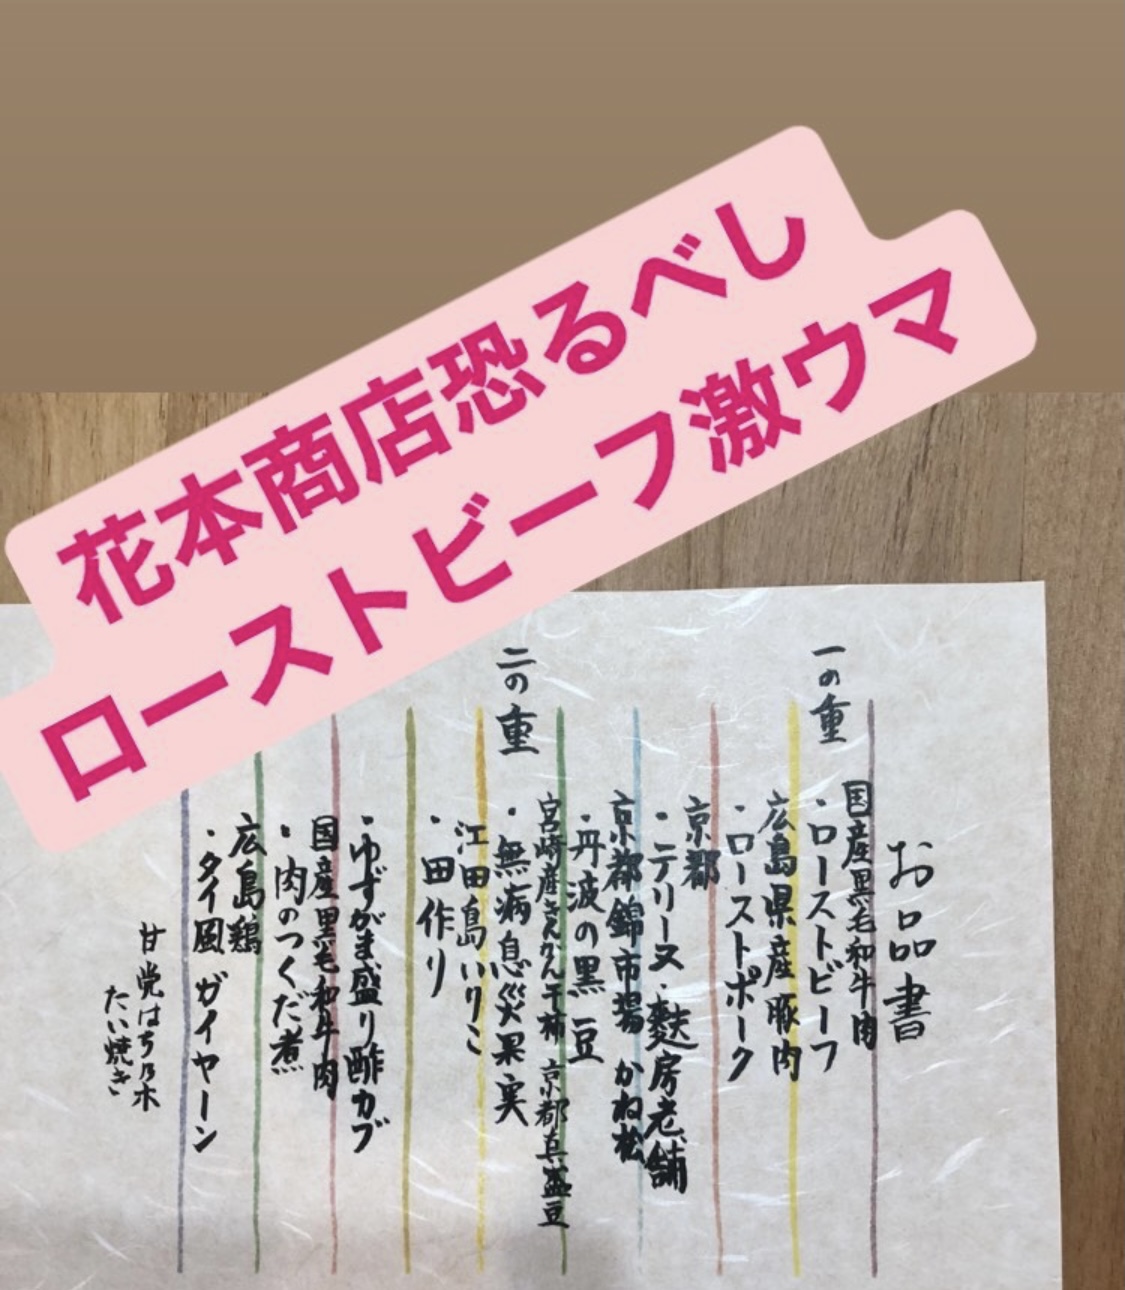 花本商店恐るべし
ローストビーフ激ウマ
お品書
一の重
国産黒毛和牛肉
・ローストビーフ
広島県産豚肉
・ローストポーク
京都
・テリーヌ・麩房老舗
京都錦市場 かね松
・丹波の黒豆
宮崎産きんかん干柿 京都真盛豆
二の重
・無病息災果実
江田島いりこ
・田作り
・ゆずがま盛り酢カブ
国産黒毛和牛肉
・肉のつくだ煮
広島鶏
・タイ風ガイヤーン
甘党はち乃木
たい焼き